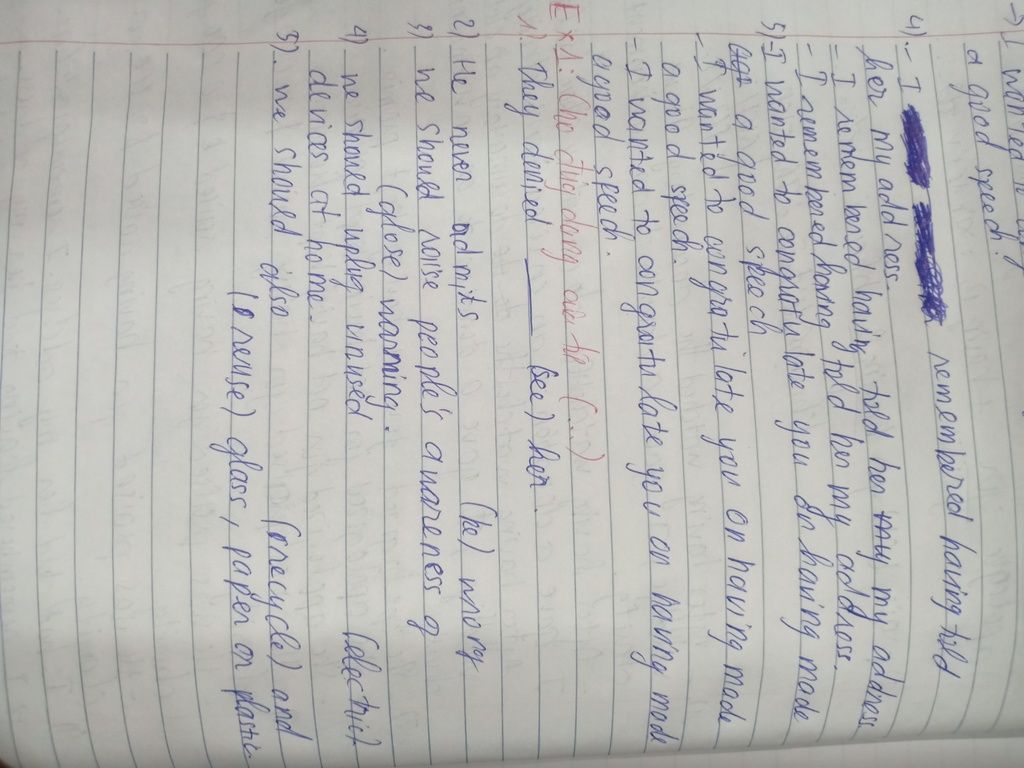 -) I wanted to
a good speech.
4) - I remembered having told
her my address.
= I remembered having told her my address
- I remembered having told her my address.
5) I wanted to congratulate you on having made
a good speech
- I wanted to congratulate you on having made
a good speech.
- I wanted to congratulate you on having made
a good speech.
Ex1: Cho dạng đúng của từ (...)
1). They denied ____ (see) her.
2) He never admits (be) wrong
3) we should raise people's awareness of
(globe) warming.
4) we should unplug unused (electric)
devices at home.
5). we should also (recycle) and
(reuse) glass, paper or plastic